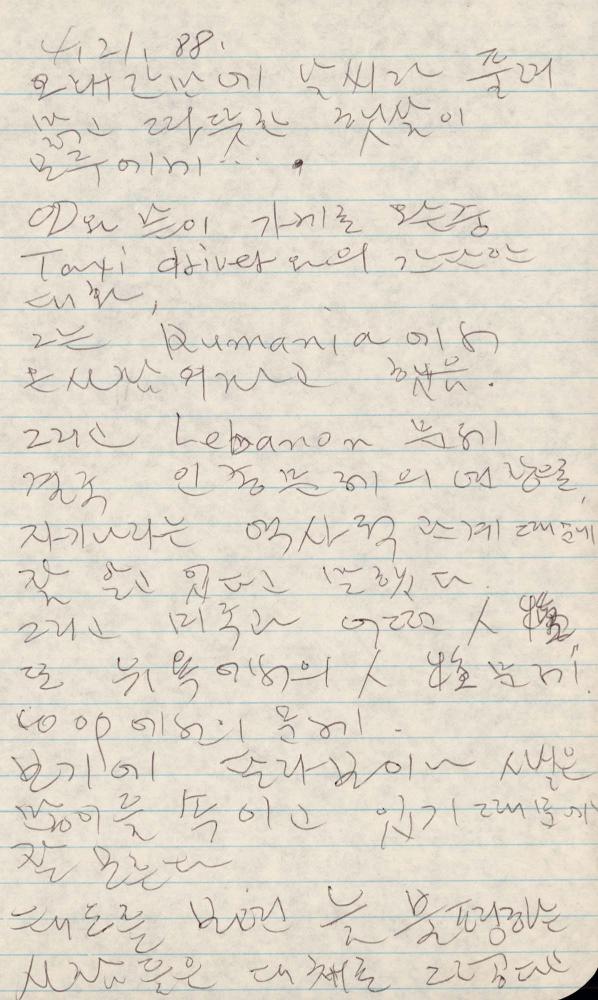 4, 21, 88.
오래간만에 날씨가 풀려
맑고 따뜻한 햇살이
모두에게 ....
와 같이 가게로 오는중
Taxi driver 와의 간단한
대화,
그는 Rumania 에서
온사람 이라고 했음.
그리고 Lebanon 문제
결국 인종문제의 영향을,
자기나라는 역사적 관계 때문에
잘 알고 있다고 말했다.
그리고 미국과 어떤 人權,
또 뉴욕에서의 人權문제,
coop 에서의 문제.
보기에 놀라보이나 사실은
을 속이고 있기때문에
잘 모른다
태도를 보면 늘 불평하는
사람들은 대체로